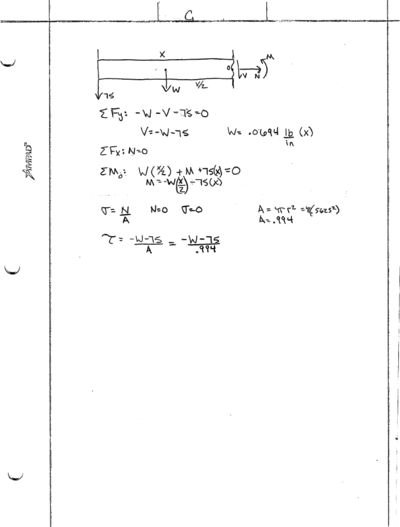 C
X
O
M
V N
W
X/2
75
ΣFy: -W-V-75=0
V=-W-75 W= .0694 lb/in (x)
ΣFx: N=0
ΣMo: W(x/2) + M +75(x)=0
M=-W(x/2)-75(x)
σ= N/A N=0 σ=0 A= πr² = π(.5625²)
A=.994
τ= -W-75/A = -W-75/.994